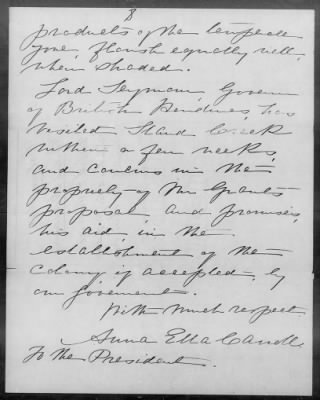 8
products of the temperate
zone flourish equally well,
when shaded.
Lord Seymour Governor
of British Honduras, has
visited Stann Creek
within a few weeks,
and concurs in the
propriety of the Grants
proposal, and promises
his aid in the
establishment of the
Colony if accepted by
our Government.
With much respect
Anna Ella Carroll.
To the President.